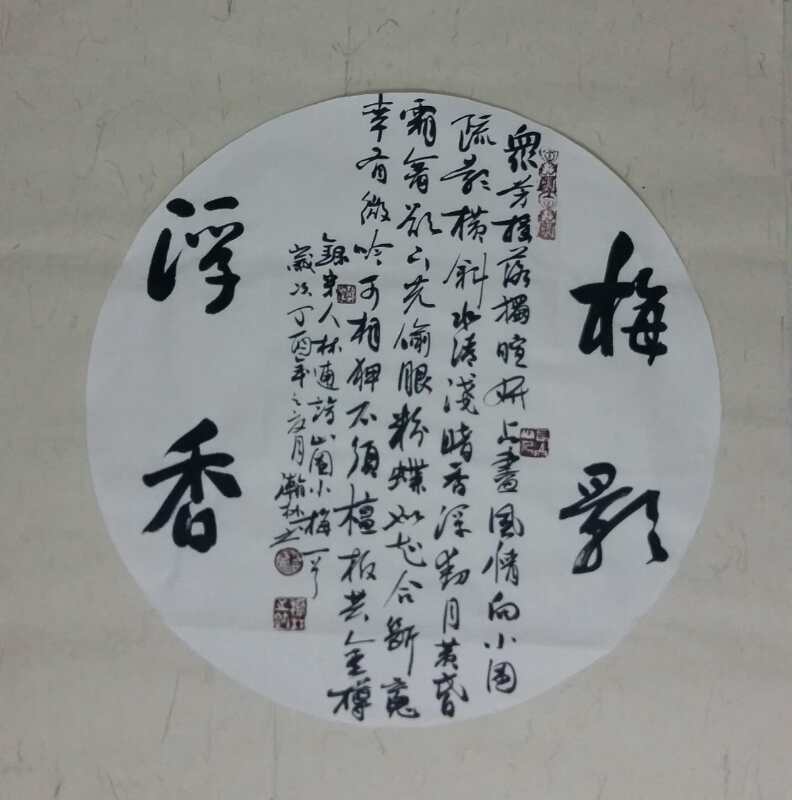 梅影
眾芳搖落獨暄妍占盡風情向小園
疏影橫斜水清淺暗香浮動月黃昏
霜禽欲下先偷眼粉蝶如知合斷魂
幸有微吟可相狎不須檀板共金樽
錄宋人林逋詩山園小梅一首
歲次丁酉年之夏月瀚林书
浮香